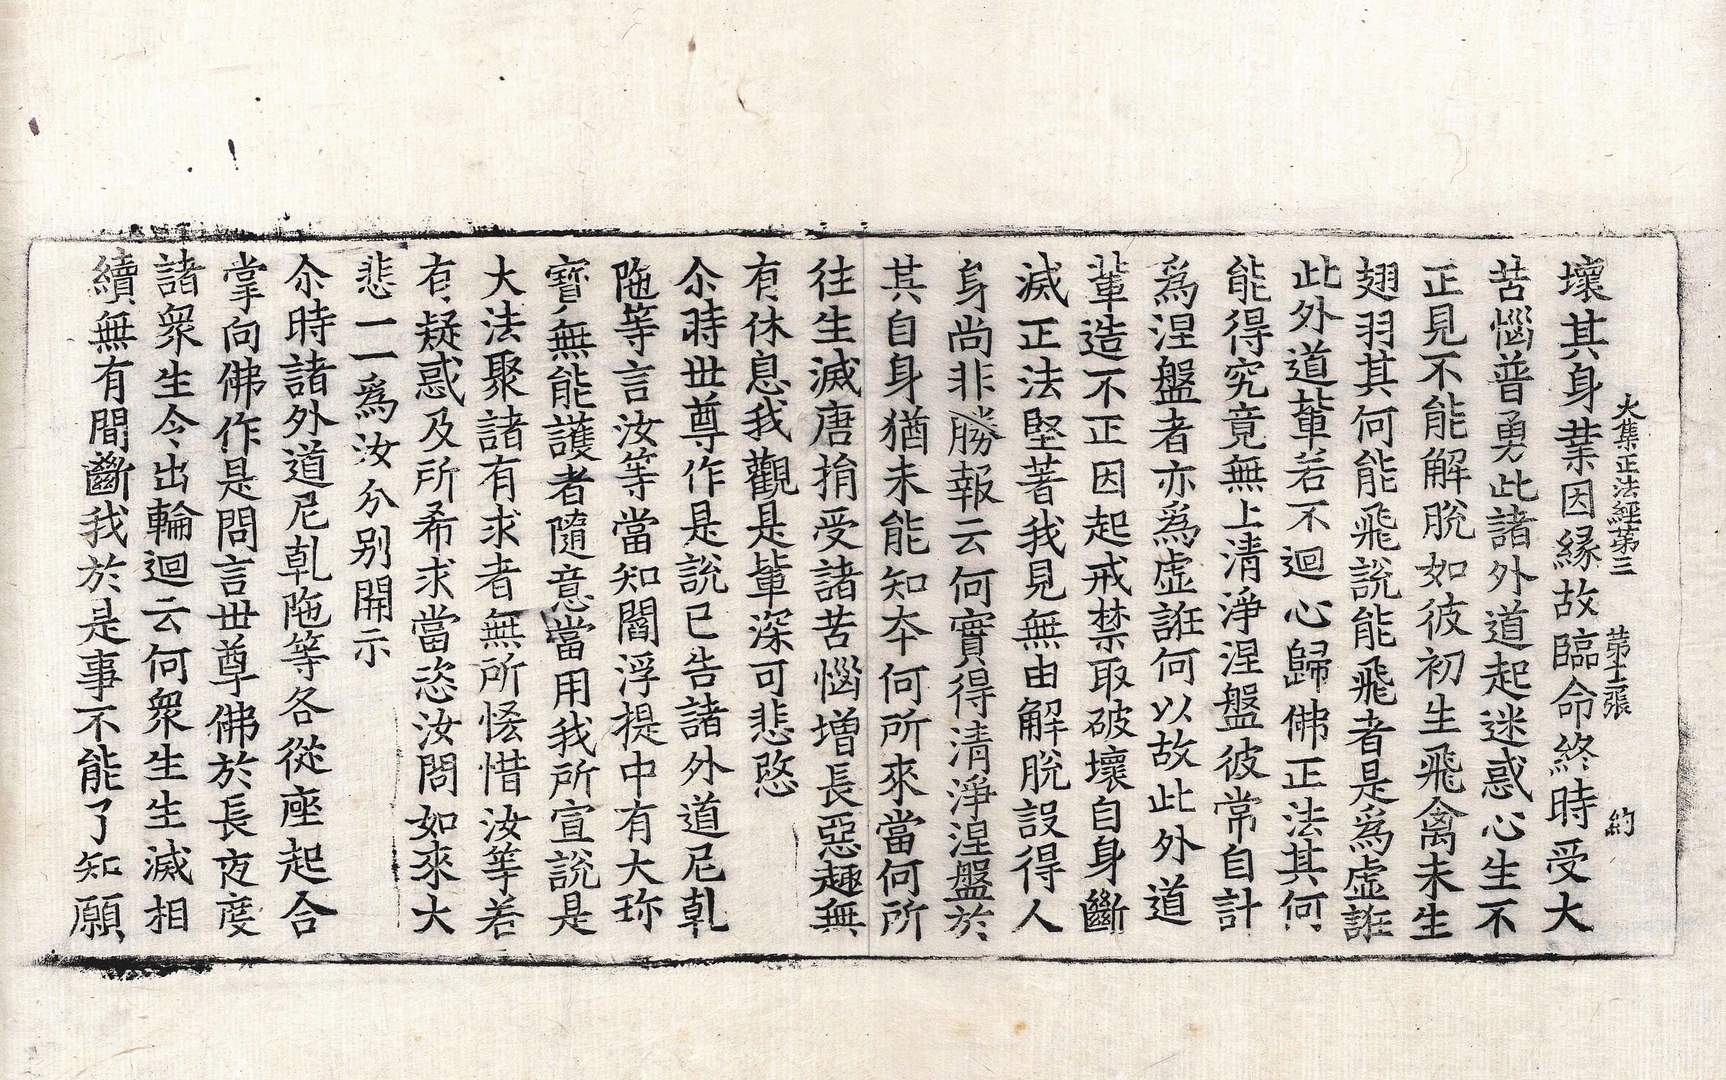 大集正法經第三　第十二張　約
壞其身業因縁故臨命終時受大
苦惱普勇此諸外道起迷惑心生不
正見不能解脫如彼初生飛禽未生
翅羽其何能飛說能飛者是爲虛誑
此外道輩若不迴心歸佛正法其何
能得究竟無上清淨涅盤彼常自計
爲涅盤者亦爲虛誑何以故此外道
輩造不正因起戒禁取破壞自身斷
滅正法堅著我見無由解脫設得人
身尚非勝報云何實得清淨涅盤於
其自身猶未能知夲何所來當何所
往生滅唐捐受諸苦惱增長惡趣無
有休息我觀是輩深可悲愍
尒時世尊作是說已告諸外道尼乹
陁等言汝等當知閻浮提中有大珎
寶無能護者隨意當用我所宣說是
大法聚諸有求者無所悋惜汝等若
有疑惑及所希求當恣汝問如來大
悲一一爲汝分別開示
尒時諸外道尼乹陁等各從座起合
掌向佛作是問言世尊佛於長夜度
諸衆生令出輪迴云何衆生生滅相
續無有間斷我於是事不能了知願